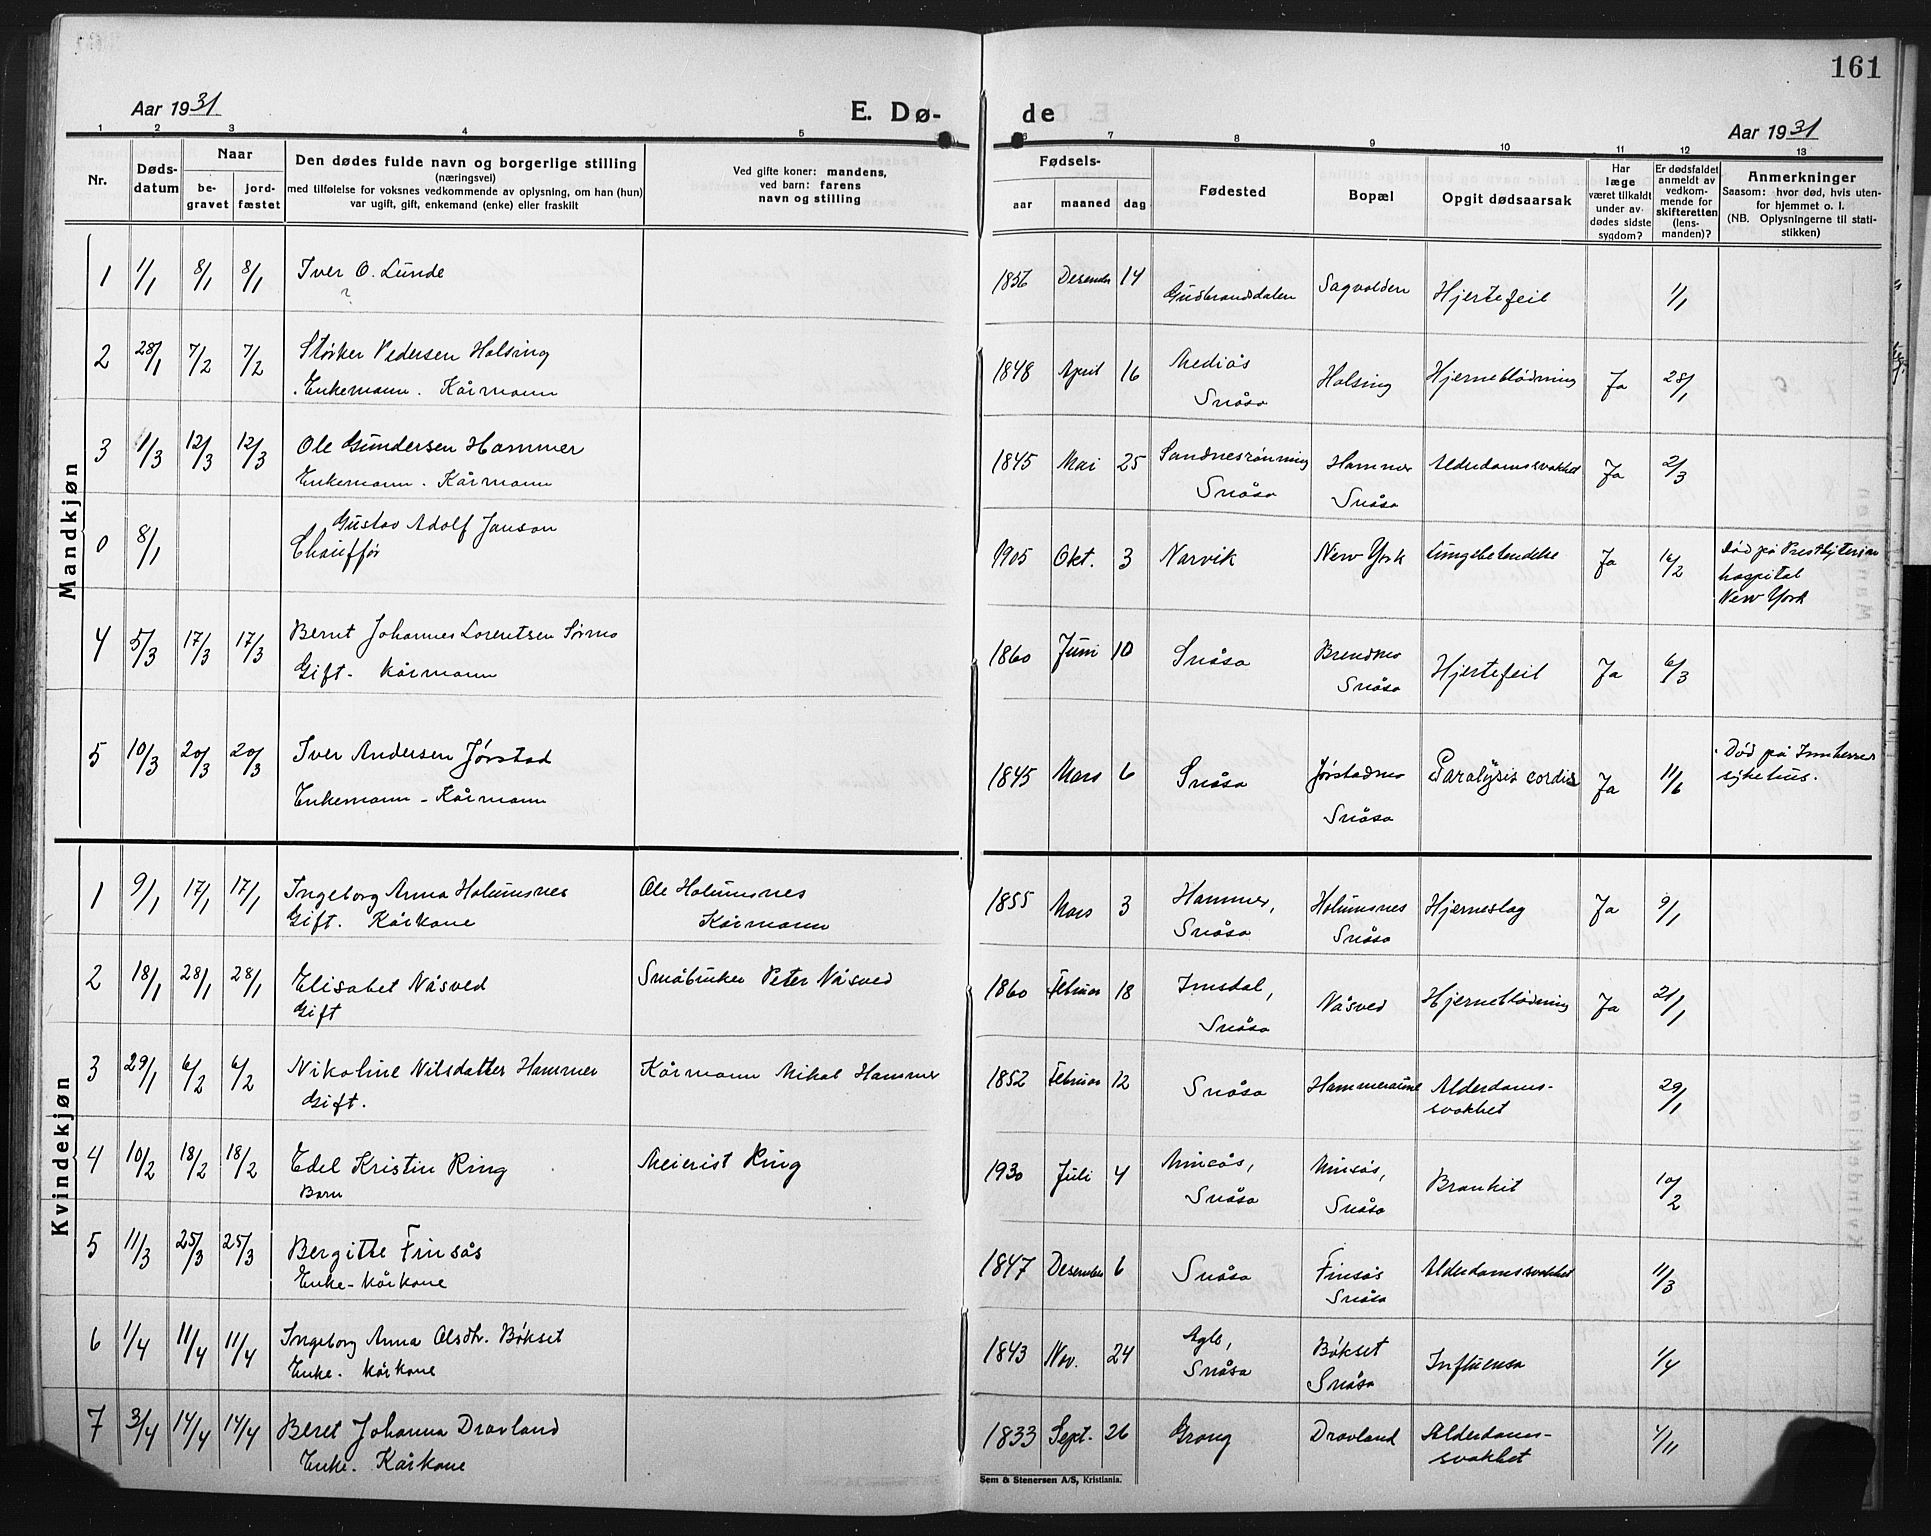 161
Aar 1931
E. Dø-
de
Aar 1931
1 2 3 4 5 6 7 8 9 10 11 12 13
Nr.
Døds-
datum
Naar
be-
gravet
jord-
fæstet
Den dødes fulde navn og borgerlige stilling
(næringsvei)
med tilføielse for voksnes vedkommende av oplysning, om han (hun)
var ugift, gift, enkemand (enke) eller fraskilt
Ved gifte koner: mandens,
ved barn: farens
navn og stilling
Fødsels-
aar maaned dag
Fødested
Bopæl
Opgit dødsaarsak
Har
læge
været tilkaldt
under av-
dødes sidste
sygdom?
Er dødsfaldet
anmeldt av
vedkom-
mende for
skifteretten
(lens-
manden)?
Anmerkninger
Saasom: hvor død, hvis uten-
for hjemmet o. l.
(NB. Oplysningerne til stati-
stikken)
Mandkjøn
1 1/1 8/1 8/1 Iver O. Lunde 1856 Desember 14 Gudbrandsdalen Sagvolden Hjertefeil 1/1
?
2 28/1 7/2 7/2 Størker Pedersen Holsing 1848 April 16 Mediås Holsing Hjerneblødning Ja 28/1
Enkemann. Kårmann Snåsa
3 1/3 12/3 12/3 Ole Gundersen Hammer 1845 Mai 25 Sandnesrønning Hammer Alderdomssvakhet Ja 2/3
Enkemann. Kårmann Snåsa Snåsa
0 8/1 Gustav Adolf Janson 1905 Okt. 3 Narvik New York Lungebetendelse Ja 16/2 Død på Presbyterian
Chauffør hospital
New York
4 5/3 17/3 17/3 Bernt Johannes Lorentsen Sørmo 1860 Juni 10 Snåsa Brendmo Hjertefeil Ja 6/3
Gift. Kårmann Snåsa
5 10/3 20/3 20/3 Iver Andersen Jørstad 1845 Mars 6 Snåsa Jørstadmo Paralysis cordis Ja 11/6 Død på Innherred
Enkemann - Kårmann Snåsa sykehus.
Kvindekjøn
1 9/1 17/1 17/1 Ingeborg Anna Holumsnes Ole Holumsnes 1855 Mars 3 Hammer, Holumsnes Hjerneslag Ja 9/1
Gift. Kårkone Kårmann Snåsa Snåsa
2 18/1 28/1 28/1 Elisabet Nåsved Småbruker Peter Nåsved 1860 Februar 18 Imsdal, Nåsved Hjerneblødning Ja 21/1
Gift Snåsa
3 29/1 6/2 6/2 Nikoline Nilsdatter Hammer Kårmann Mikal Hammer 1852 Februar 12 Snåsa Alderdoms- 29/1
Gift. svakhet
4 10/2 18/2 18/2 Edel Kristin Ring Meierist Ring 1930 Juli 4 Vinsås, Vinsås, Bronkit 10/2
Barn Snåsa Snåsa
5 11/3 25/3 25/3 Bergitte Finsås 1847 Desember 6 Snåsa Finsås Alderdomssvakhet 11/3
Enke - Kårkone Snåsa
6 1/4 11/4 11/4 Ingeborg Anna Olsdtr. Bøkset 1843 Nov. 24 Agle, Bøkset Influensa 1/4
Enke. Kårkone Snåsa Snåsa
7 3/4 14/4 14/4 Beret Johanna Dravland 1833 Sept. 26 Grong Dravland Alderdoms- 4/11
Enke. Kårkone svakhet
Sem & Stenersen A/S, Kristiania.